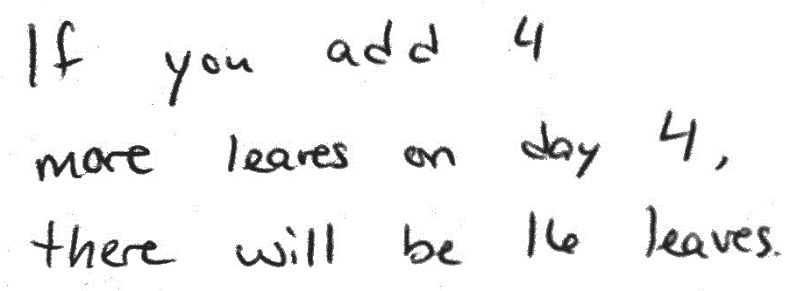 If you add 4
more leaves on day 4,
there will be 16 leaves.